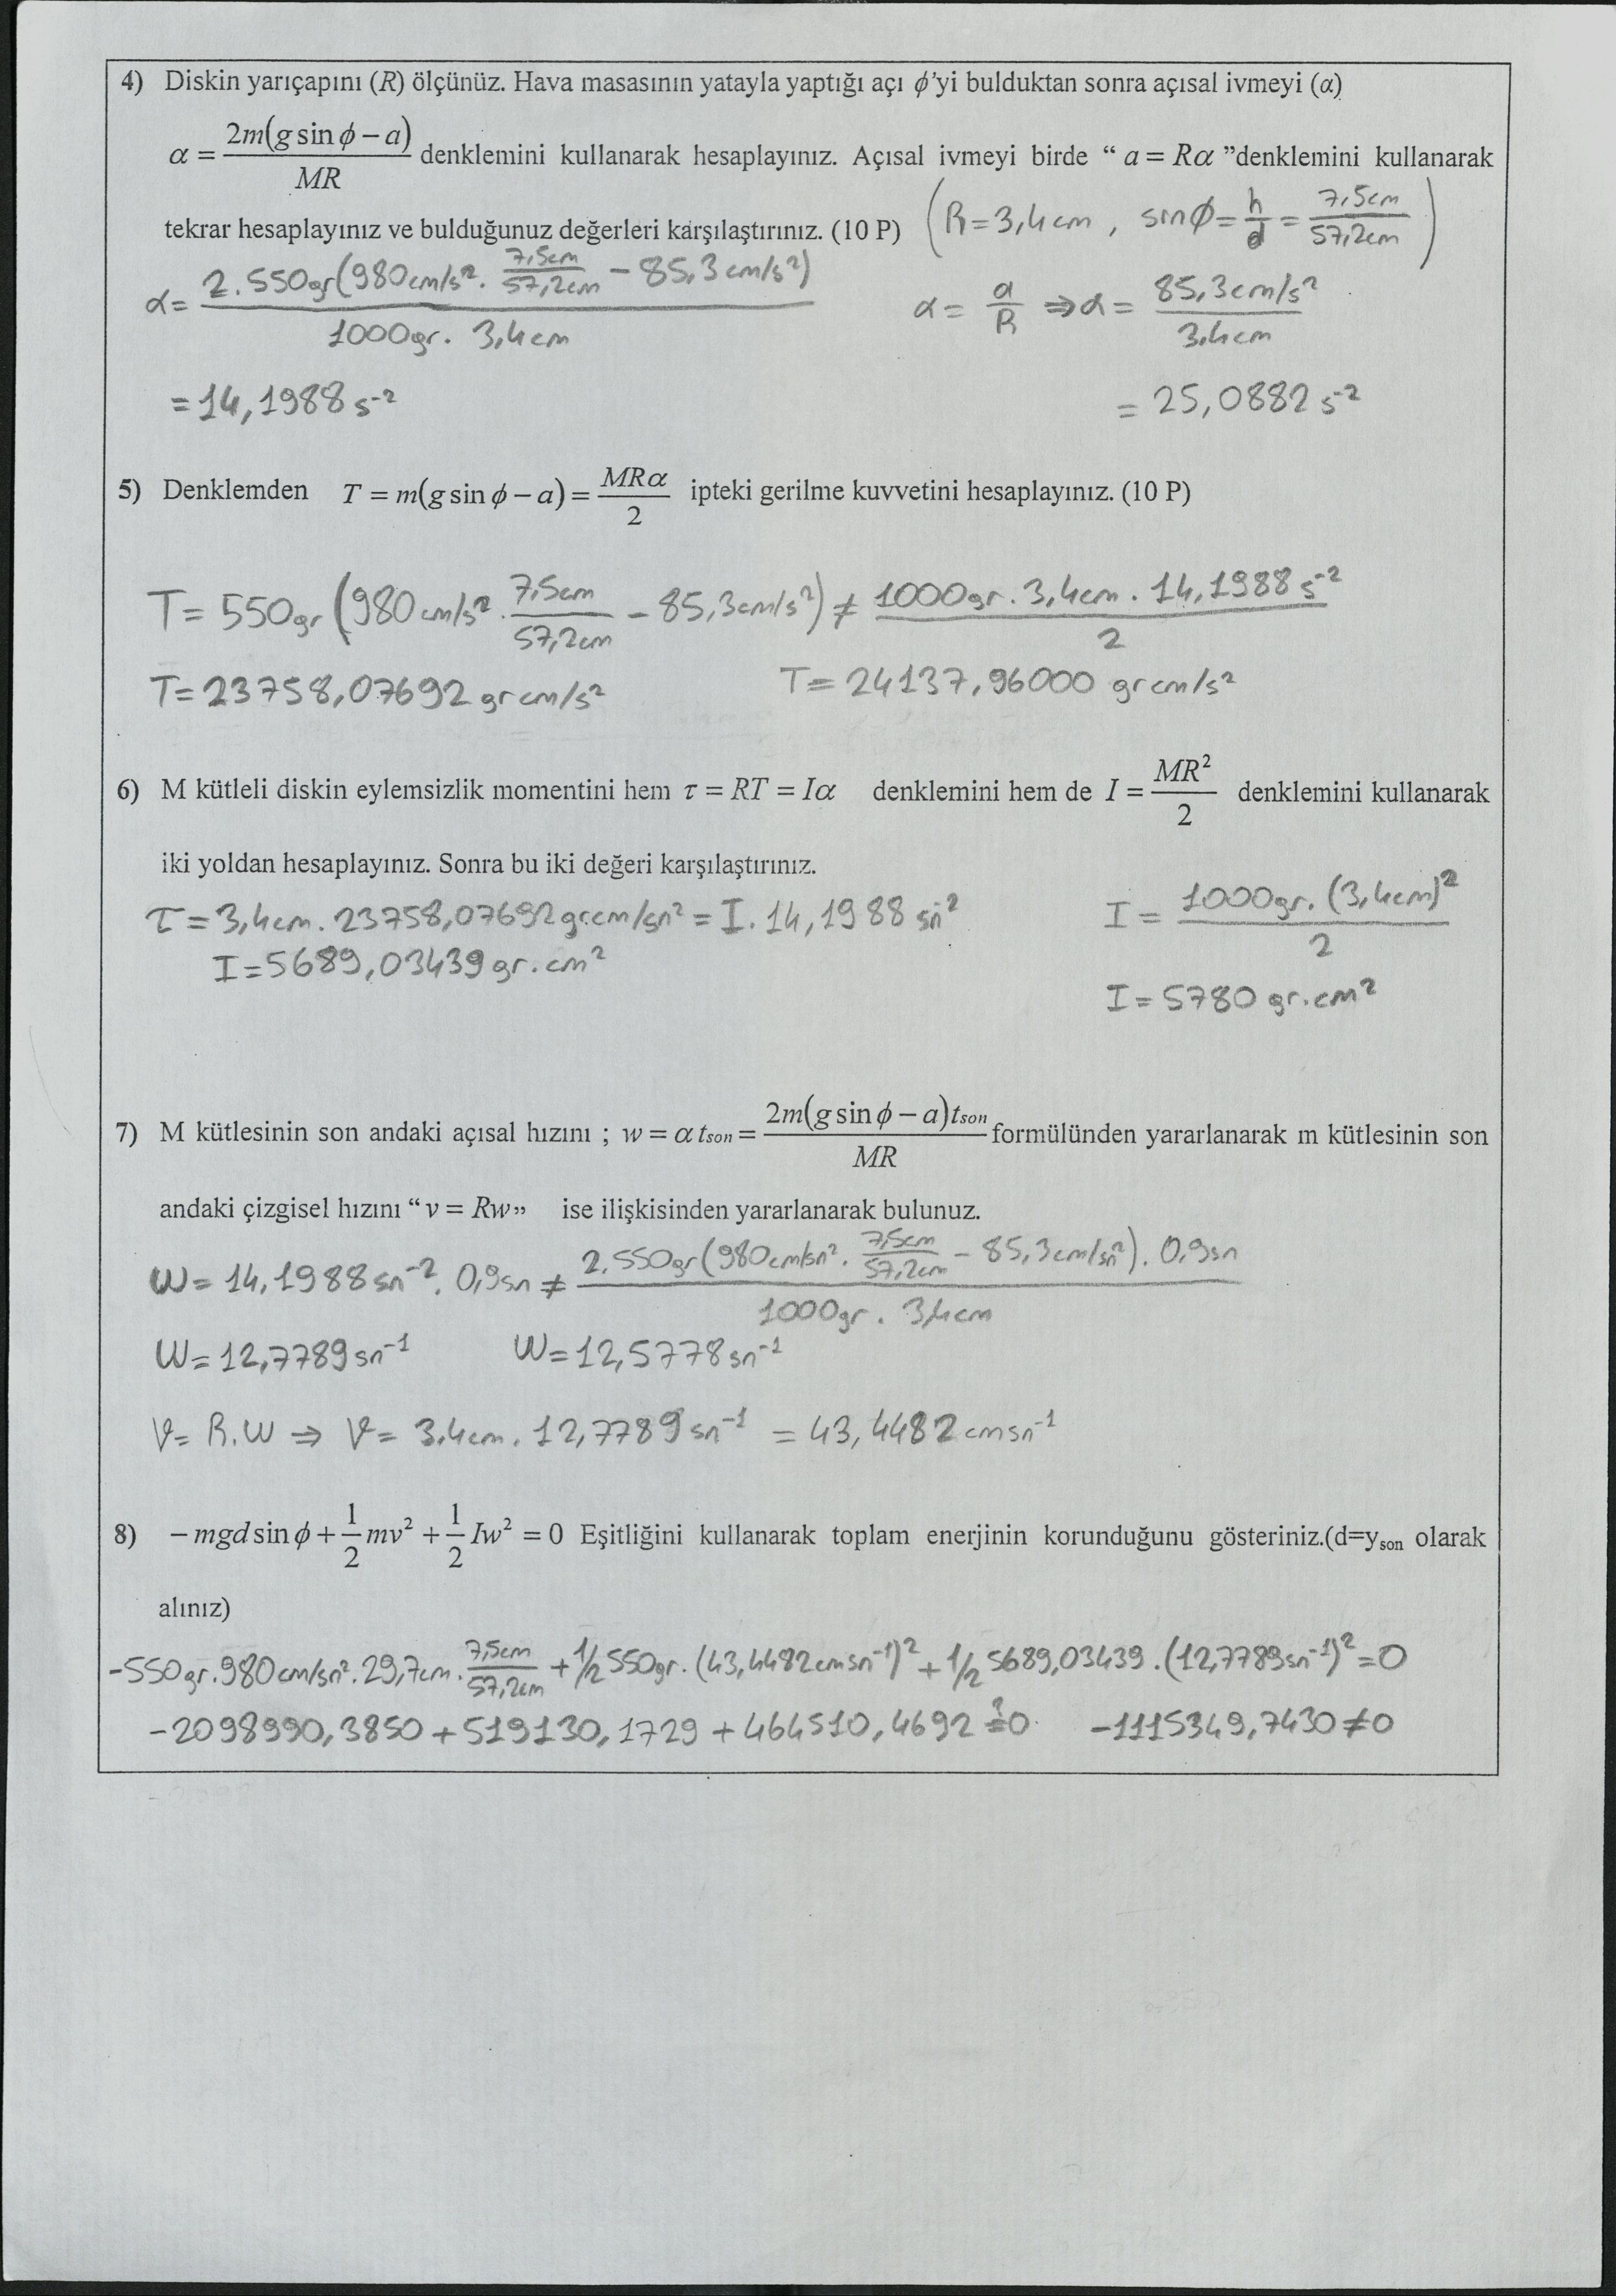 4) Diskin yarıçapını (R) ölçünüz. Hava masasının yatayla yaptığı açı ϕ'yi bulduktan sonra açısal ivmeyi (α)
α = 2m(g sin ϕ – a) / MR denklemini kullanarak hesaplayınız. Açısal ivmeyi birde “ a = Rα ”denklemini kullanarak
tekrar hesaplayınız ve bulduğunuz değerleri karşılaştırınız. (10 P) (R=3,4cm , sinϕ = h/d = 7,5cm/57,2cm)
α = 2.550gr(980cm/s². 7,5cm/57,2cm − 85,3cm/s²) / 1000gr. 3,4cm α = a/R ⇒ α = 85,3cm/s² / 3,4cm
= 14,1988 s⁻² = 25,0882 s⁻²
5) Denklemden T = m(g sin ϕ – a) = MRα / 2 ipteki gerilme kuvvetini hesaplayınız. (10 P)
T = 550gr (980cm/s². 7,5cm/57,2cm − 85,3cm/s²) ≠ 1000gr. 3,4cm. 14,1988 s⁻² / 2
T = 23758,07692 gr cm/s² T = 24137,96000 gr cm/s²
6) M kütleli diskin eylemsizlik momentini hem τ = RT = Iα denklemini hem de I = MR² / 2 denklemini kullanarak
iki yoldan hesaplayınız. Sonra bu iki değeri karşılaştırınız.
τ = 3,4cm. 23758,07692 gr.cm/sn² = I. 14,1988 sn⁻² I = 1000gr. (3,4cm)² / 2
I = 5689,03439 gr. cm² I = 5780 gr.cm²
7) M kütlesinin son andaki açısal hızını ; w = α tson = 2m(g sin ϕ – a)tson / MR formülünden yararlanarak m kütlesinin son
andaki çizgisel hızını “ v = Rw” ise ilişkisinden yararlanarak bulunuz.
W = 14,1988 sn⁻². 0,9sn ≠ 2.550gr(980cm/sn². 7,5cm/57,2cm − 85,3cm/sn²). 0,9sn / 1000gr. 3,4cm
W = 12,7789 sn⁻¹ W = 12,5778 sn⁻¹
V = R.W ⇒ V = 3,4cm. 12,7789 sn⁻¹ = 43,4482 cm sn⁻¹
8) – mgd sin ϕ + 1/2 mv² + 1/2 Iw² = 0 Eşitliğini kullanarak toplam enerjinin korunduğunu gösteriniz.(d=yson olarak
alınız)
-550gr.980cm/sn².29,7cm. 7,5cm/57,2cm + 1/2 550gr. (43,4482cmsn⁻¹)² + 1/2 5689,03439.(12,7789sn⁻¹)² = 0
-2098990,3850 + 519130,1729 + 464510,4692 ≟ 0 -1115349,7430 ≠ 0